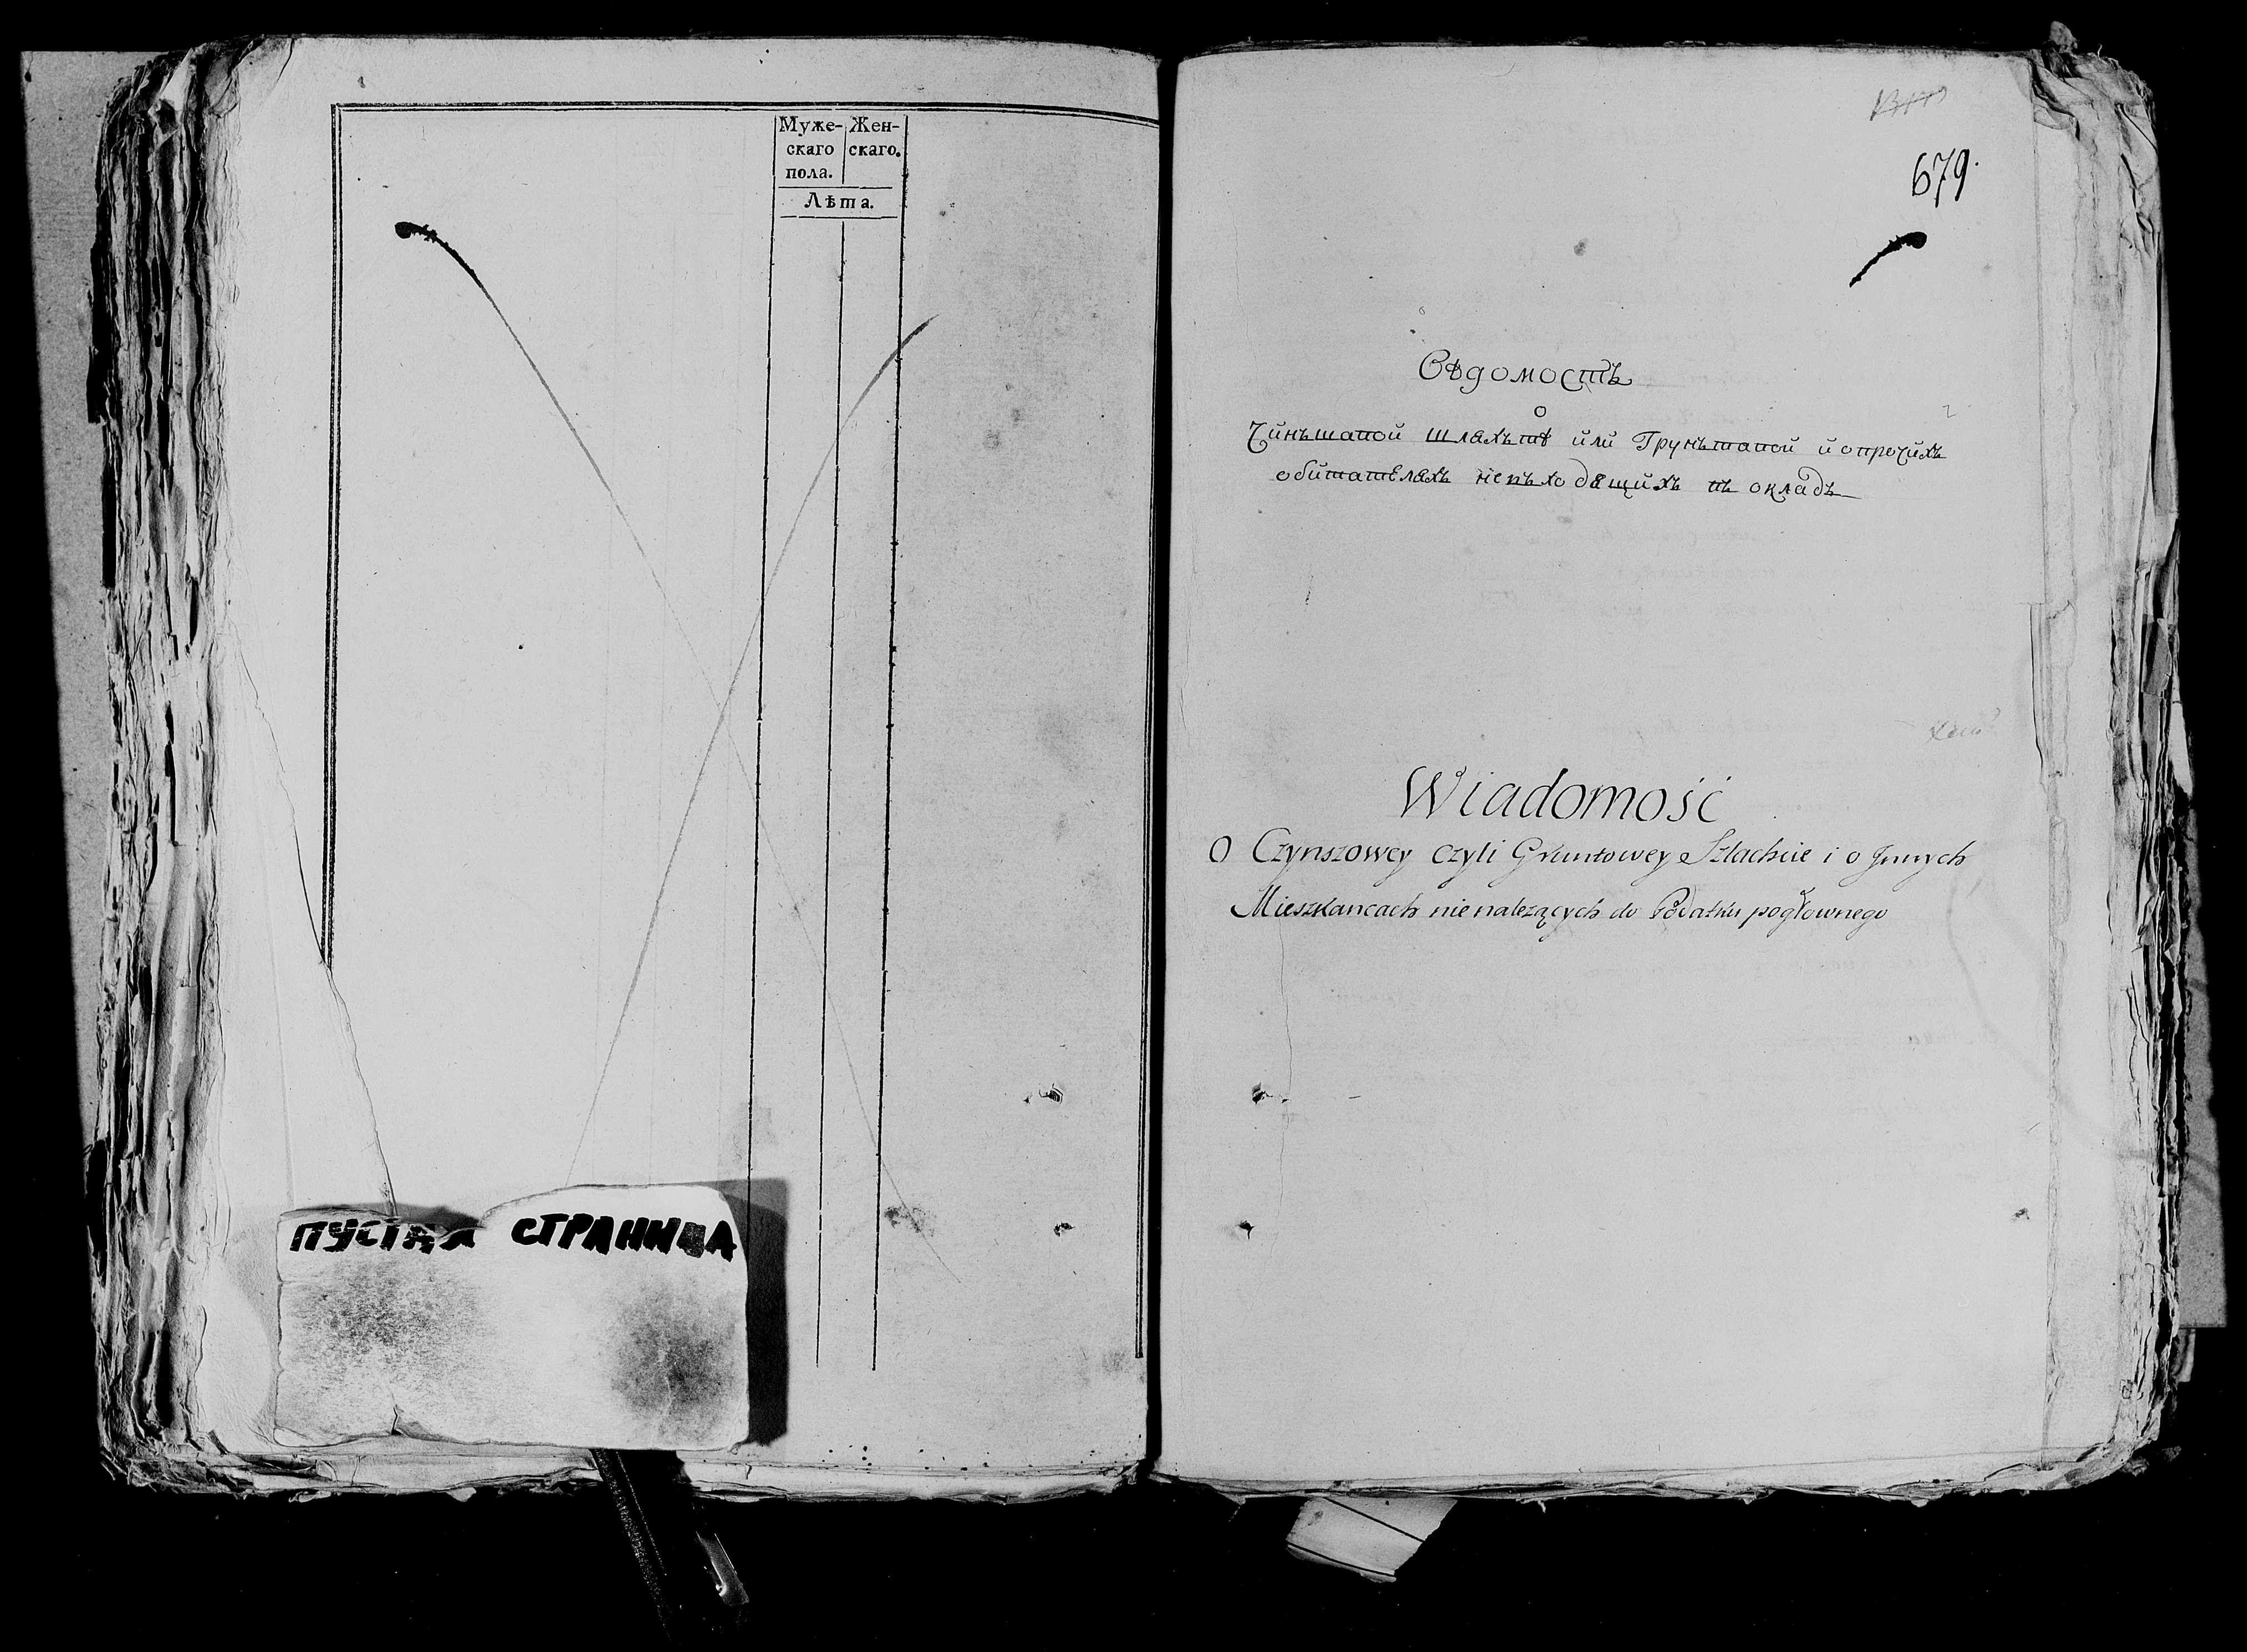 Муже- Жен-
скаго скаго.
пола.
Лѣта.
ПУСТАЯ СТРАНИЦА
679.
Вѣдомость
о
Чинъшавой шляхътѣ или Грунътавой и опрочихъ
обитателяхъ невъходящихъ въ окладъ
Wiadomość
O Czynszowey czyli Gruntowey Szlachcie i o Jnnych
Mieszkancach nienależących do Podatku pogłownego